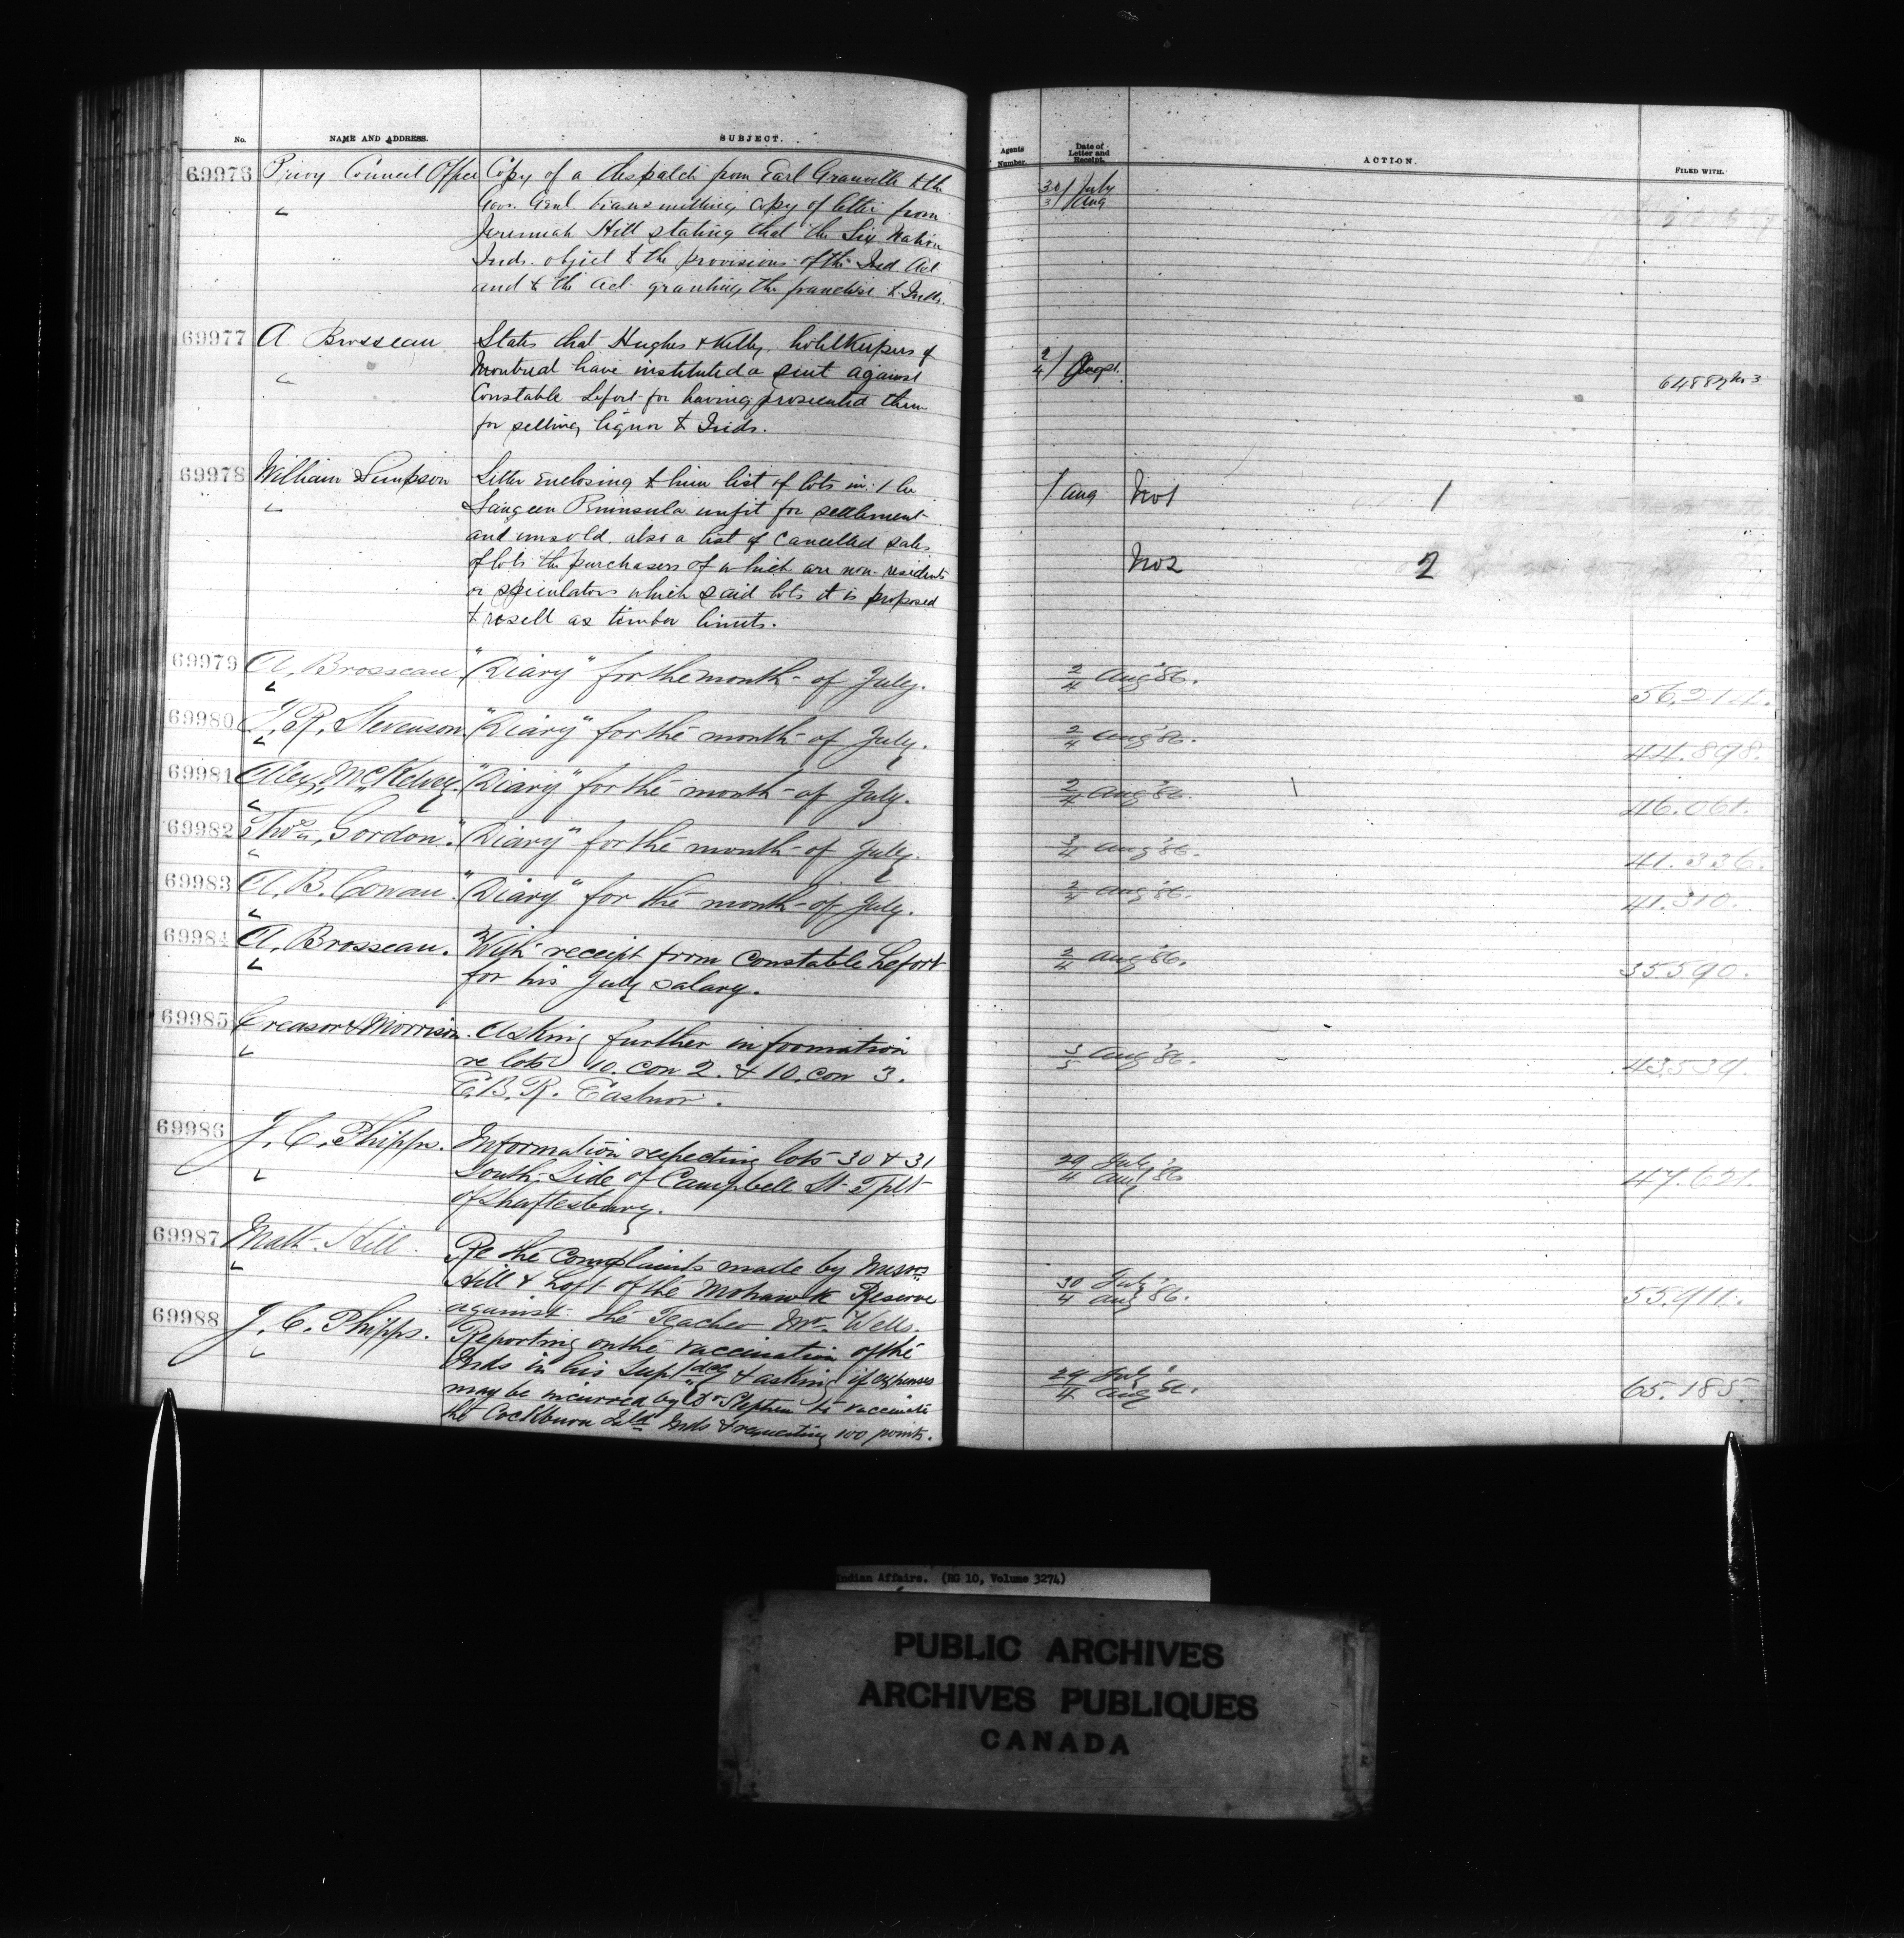 No. NAME AND ADDRESS. SUBJECT. Agents Number. Date of Letter and Receipt. ACTION. FILED WITH.
69976 Privy Council Office Copy of a despatch from Earl Granville to the 30/3 July/Aug
Gov. Genl transmitting copy of letter from
Jeremiah Hill stating that the Six Nation
Inds. object to the provisions of the Ind. Act
and to the Act granting the franchise to Inds.
69977 A Brosseau States that Hughes & Kelly hotelkeepers of
Montreal have instituted a suit against 2/4 August. 64889 No 3
Constable Lefort for having prosecuted them
for selling liquor to Inds.
69978 William Simpson Letter enclosing to him list of lots in the 1 Aug No1 1
Saugeen Peninsula unfit for settlement
and unsold also a list of cancelled sales
of lots the purchasers of which are non-residents No2 2
or speculators which said lots it is proposed
to resell as timber limits.
69979 A. Brosseau. "Diary" for the month of July. 2/4 Aug '86. 56,214.
69980 J. R. Stevenson. "Diary" for the month of July. 2/4 Aug '86. 44.898.
69981 Alex. McKelvey. "Diary" for the month of July. 2/4 Aug '86. 46.061.
69982 Thos. Gordon. "Diary" for the month of July. 3/4 Aug '86. 41.336.
69983 A. B. Cowan. "Diary" for the month of July. 2/4 Aug '86. 41.310.
69984 A. Brosseau. With receipt from Constable Lefort 2/4 Aug '86. 35590.
for his July salary.
69985 Creasor & Morrison. Asking further information
re lots 10. con 2. & 10. con 3. 3/5 Aug '86. 43539.
E.B.R. Eastnor.
69986 J. C. Phipps. Information respecting lots 30 & 31
South Side of Campbell St. Tplt 29/4 July/Aug '86 47.621.
of Shaftesbury.
69987 Matt. Hill. Re the complaints made by Messrs
Hill & Loft of the Mohawk Reserve 30/4 July/Aug '86. 55.911.
against the Teacher Mr. Wells.
69988 J. C. Phipps. Reporting on the vaccination of the
Inds in his Suptdcy & asking if expenses 29/4 July/Aug '86. 65.185.
may be incurred by Dr Stephen to vaccinate
the Cockburn Isld Inds & requesting 100 points.
Indian Affairs. (RG 10, Volume 3274)
PUBLIC ARCHIVES
ARCHIVES PUBLIQUES
CANADA